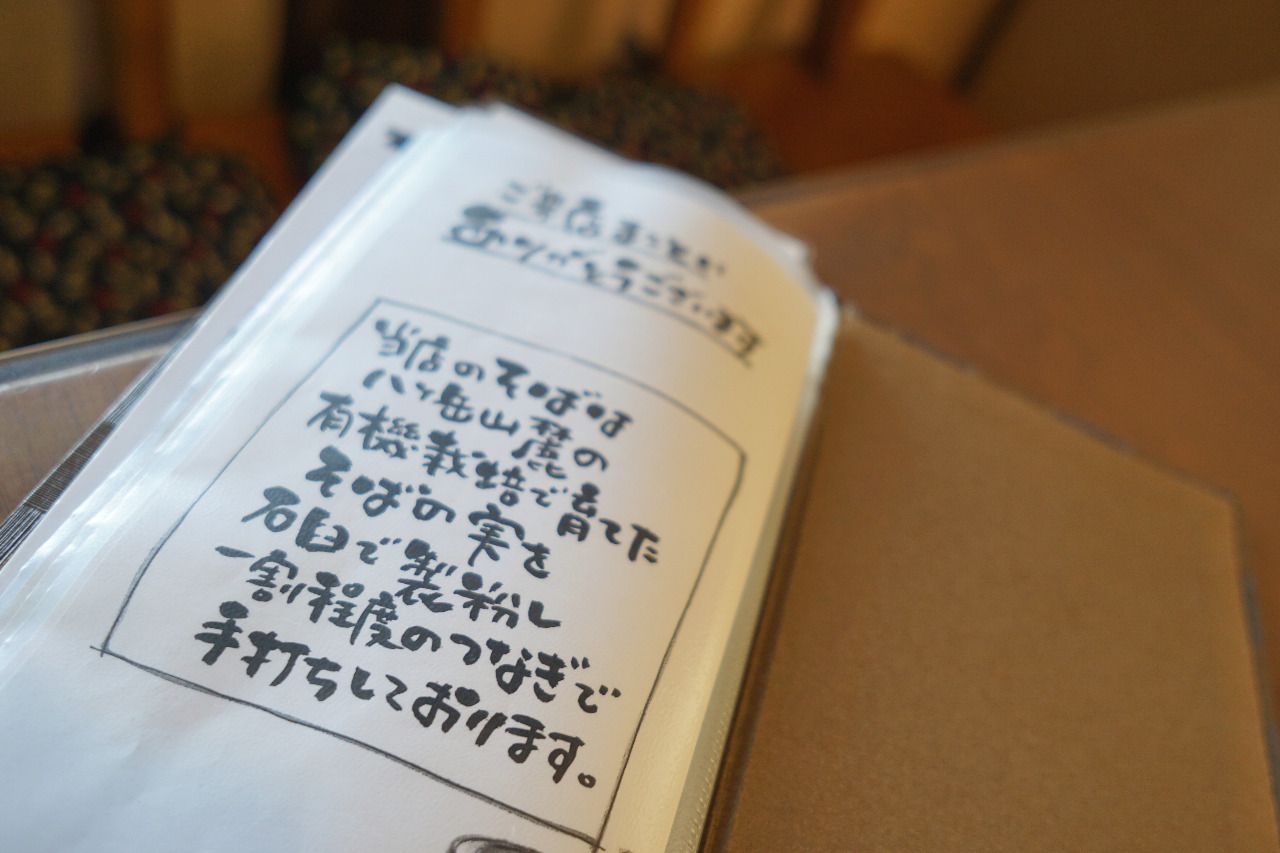 ご来店まことに
ありがとうございます
当店のそばは
八ヶ岳山麓の
有機栽培で育てた
そばの実を
石臼で製粉し
一割程度のつなぎで
手打ちしております。